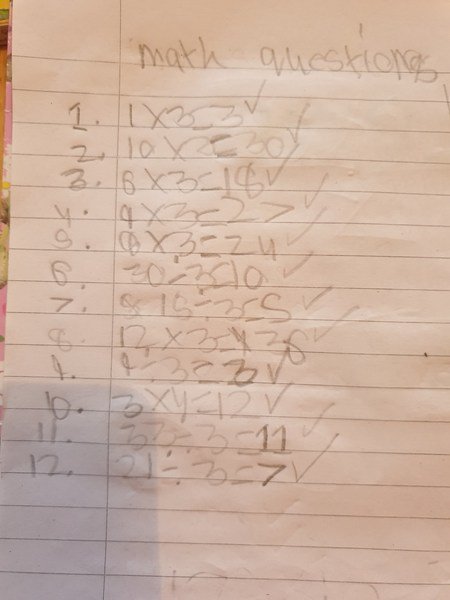 math questions
1. 1 x 3 = 3 ✓
2. 10 x 3 = 30 ✓
3. 6 x 3 = 18 ✓
4. 9 x 3 = 27 ✓
5. 8 x 3 = 24 ✓
6. 30 ÷ 3 = 10 ✓
7. 15 ÷ 3 = 5 ✓
8. 12 x 3 = 36 ✓
9. 9 ÷ 3 = 3 ✓
10. 3 x 4 = 12 ✓
11. 33 ÷ 3 = 11 ✓
12. 21 ÷ 3 = 7 ✓